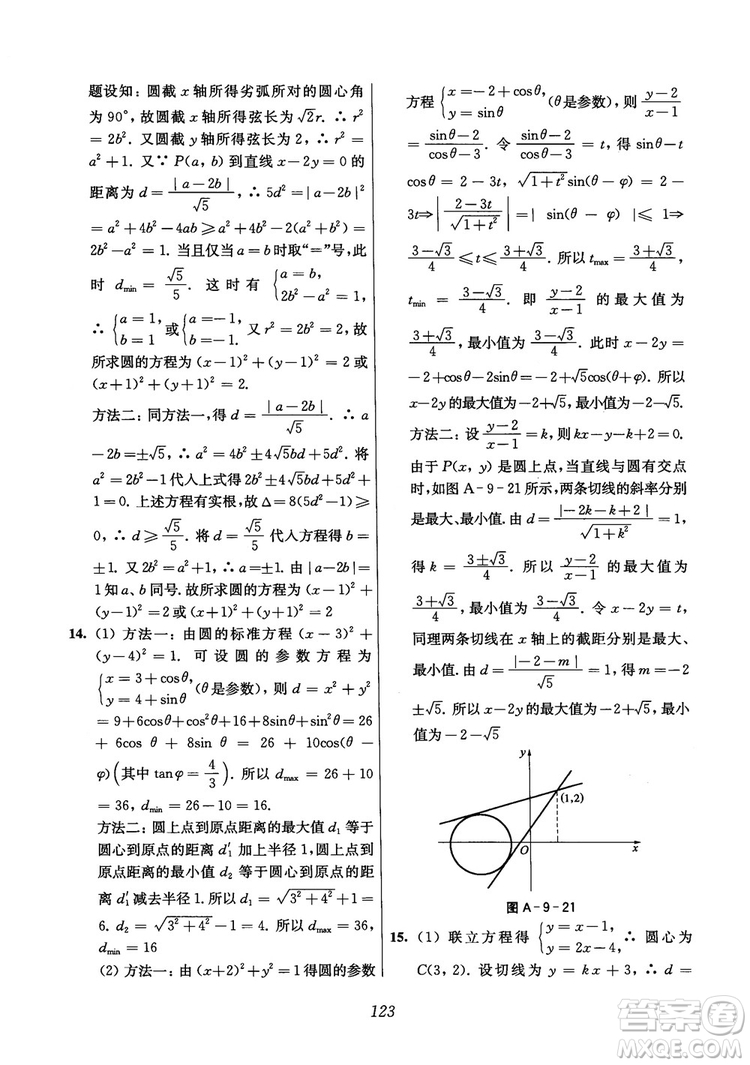 题设知：圆截 x 轴所得劣弧所对的圆心角
为 90°，故圆截 x 轴所得弦长为 √2r. ∴ r²
= 2b². 又圆截 y 轴所得弦长为 2，∴ r² =
a² + 1. 又∵ P(a, b) 到直线 x − 2y = 0 的
距离为 d = |a − 2b| / √5，∴ 5d² = |a − 2b|²
= a² + 4b² − 4ab ≥ a² + 4b² − 2(a² + b²) =
2b² − a² = 1. 当且仅当 a = b 时取“=”号，此
时 d_min = √5/5. 这时有 {a = b, 2b² − a² = 1,
∴ {a = 1, b = 1 或 {a = −1, b = −1. 又 r² = 2b² = 2，故
所求圆的方程为 (x−1)² + (y−1)² = 2 或
(x+1)² + (y+1)² = 2.
方法二：同方法一，得 d = |a − 2b| / √5. ∴ a
− 2b = ±√5, ∴ a² = 4b² ± 4√5bd + 5d². 将
a² = 2b² − 1 代人上式得 2b² ± 4√5bd + 5d² +
1 = 0. 上述方程有实根，故 Δ = 8(5d² − 1) ≥
0, ∴ d ≥ √5/5. 将 d = √5/5 代人方程得 b =
±1. 又 2b² = a² + 1, ∴ a = ±1. 由 |a − 2b| =
1 知 a、b 同号. 故所求圆的方程为 (x−1)² +
(y−1)² = 2 或 (x+1)² + (y+1)² = 2
14. (1) 方法一：由圆的标准方程 (x − 3)² +
(y−4)² = 1. 可设圆的参数方程为
{x = 3 + cosθ, y = 4 + sinθ (θ 是参数)，则 d = x² + y²
= 9+6cosθ+cos²θ+16+8sinθ+sin²θ = 26
+ 6cos θ + 8sin θ = 26 + 10cos(θ −
φ)(其中 tanφ = 4/3). 所以 d_max = 26 + 10
= 36, d_min = 26 − 10 = 16.
方法二：圆上点到原点距离的最大值 d₁ 等于
圆心到原点的距离 d′₁ 加上半径 1，圆上点到
原点距离的最小值 d₂ 等于圆心到原点的距
离 d′₁ 减去半径 1. 所以 d₁ = √(3² + 4²) + 1 =
6. d₂ = √(3² + 4²) − 1 = 4. 所以 d_max = 36,
d_min = 16
(2) 方法一：由 (x+2)² + y² = 1 得圆的参数
方程 {x = −2 + cosθ, y = sinθ (θ 是参数)，则 (y−2)/(x−1)
= (sinθ − 2)/(cosθ − 3). 令 (sinθ − 2)/(cosθ − 3) = t，得 sinθ − t
cosθ = 2 − 3t, √(1+t²) sin(θ − φ) = 2 −
3t ⇒ |(2 − 3t)/√(1+t²)| = | sin(θ − φ) | ≤ 1 ⇒
(3−√3)/4 ≤ t ≤ (3+√3)/4. 所以 t_max = (3+√3)/4,
t_min = (3−√3)/4. 即 (y−2)/(x−1) 的最大值为
(3+√3)/4，最小值为 (3−√3)/4. 此时 x − 2y =
−2+cosθ−2sinθ = −2+√5cos(θ+φ). 所以
x−2y 的最大值为 −2+√5，最小值为 −2−√5.
方法二：设 (y−2)/(x−1) = k，则 kx−y−k+2 = 0.
由于 P(x, y) 是圆上点，当直线与圆有交点
时，如图 A-9-21 所示，两条切线的斜率分别
是最大、最小值. 由 d = |−2k − k + 2| / √(1 + k²) = 1,
得 k = (3±√3)/4. 所以 (y−2)/(x−1) 的最大值为
(3+√3)/4，最小值为 (3−√3)/4. 令 x − 2y = m,
同理两条切线在 x 轴上的截距分别是最大、
最小值. 由 d = |−2 − m| / √5 = 1，得 m = −2
±√5. 所以 x−2y 的最大值为 −2+√5，最小
值为 −2−√5
y
(1,2)
O
x
图 A-9-21
15. (1) 联立方程得 {y = x − 1, y = 2x − 4, ∴ 圆心为
C(3, 2). 设切线为 y = kx + 3, ∴ d =
123
答案卷